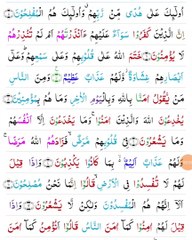 أُولٰٓئِكَ عَلٰى هُدًى مِّنْ رَّبِّهِمْ وَاُولٰٓئِكَ هُمُ الْمُفْلِحُوْنَ
اِنَّ الَّذِيْنَ كَفَرُوْا سَوَآءٌ عَلَيْهِمْ ءَاَنْذَرْتَهُمْ اَمْ لَمْ تُنْذِرْهُمْ
لَا يُؤْمِنُوْنَ خَتَمَ اللّٰهُ عَلٰى قُلُوْبِهِمْ وَعَلٰى سَمْعِهِمْ وَعَلٰٓى
اَبْصَارِهِمْ غِشَاوَةٌ وَّلَهُمْ عَذَابٌ عَظِيْمٌ وَمِنَ النَّاسِ
مَنْ يَّقُوْلُ اٰمَنَّا بِاللّٰهِ وَبِالْيَوْمِ الْاٰخِرِ وَمَا هُمْ بِمُؤْمِنِيْنَ
يُخٰدِعُوْنَ اللّٰهَ وَالَّذِيْنَ اٰمَنُوْا وَمَا يَخْدَعُوْنَ اِلَّآ اَنْفُسَهُمْ
وَمَا يَشْعُرُوْنَ فِيْ قُلُوْبِهِمْ مَّرَضٌ فَزَادَهُمُ اللّٰهُ مَرَضًا
وَلَهُمْ عَذَابٌ اَلِيْمٌ بِمَا كَانُوْا يَكْذِبُوْنَ وَاِذَا قِيْلَ
لَهُمْ لَا تُفْسِدُوْا فِي الْاَرْضِ قَالُوْٓا اِنَّمَا نَحْنُ مُصْلِحُوْنَ
اَلَآ اِنَّهُمْ هُمُ الْمُفْسِدُوْنَ وَلٰكِنْ لَّا يَشْعُرُوْنَ وَاِذَا
قِيْلَ لَهُمْ اٰمِنُوْا كَمَآ اٰمَنَ النَّاسُ قَالُوْٓا اَنُؤْمِنُ كَمَآ اٰمَنَ